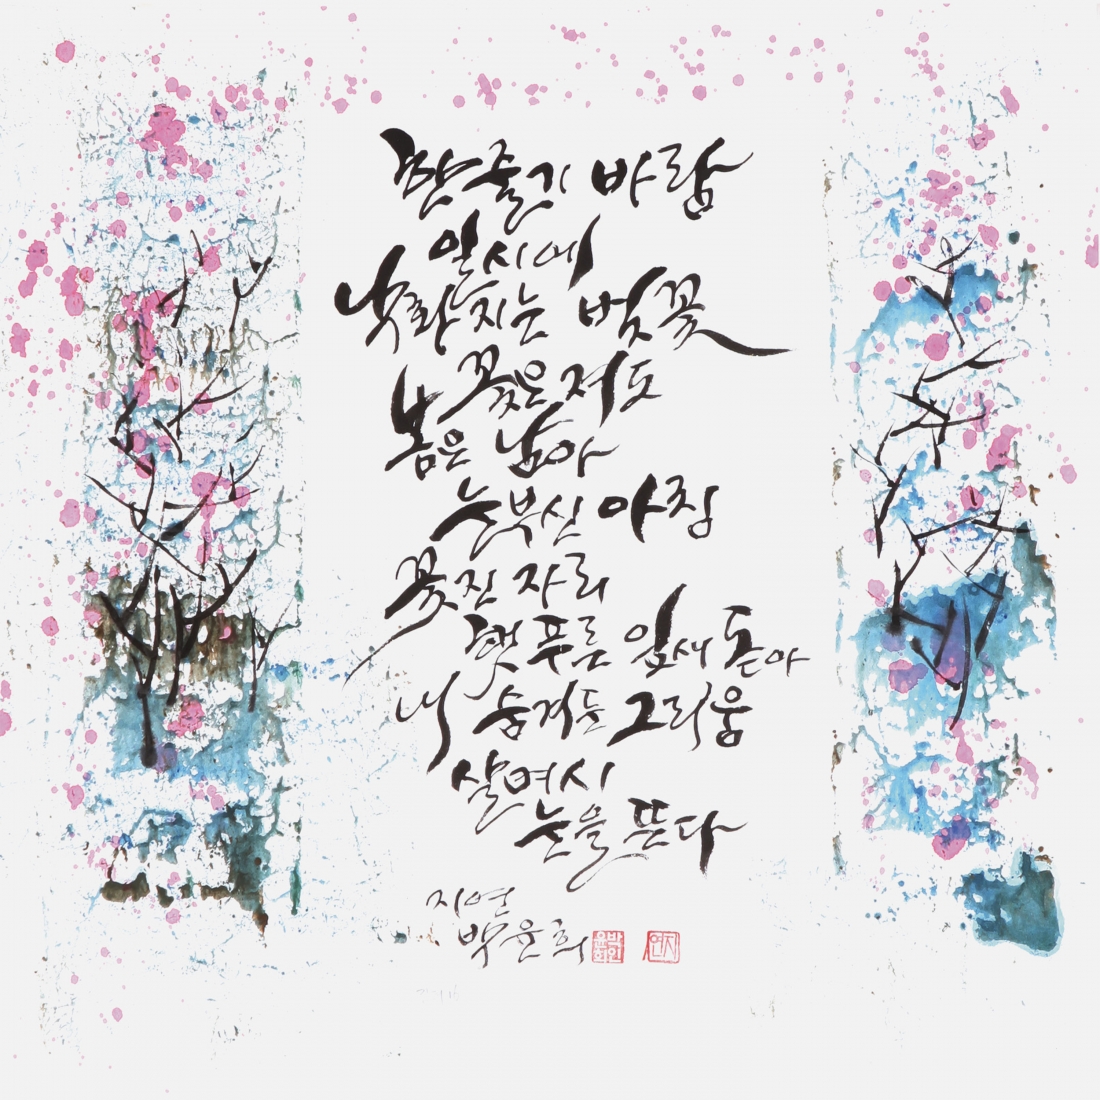 한줄기 바람
일시에
낙화 지는 벚꽃
꽃은 져도
봄은 남아
눈부신 아침
꽃진 자리
햇푸른 잎새 돋아
내 숨겨둔 그리움
살며시
눈을 뜬다
지연
박윤희